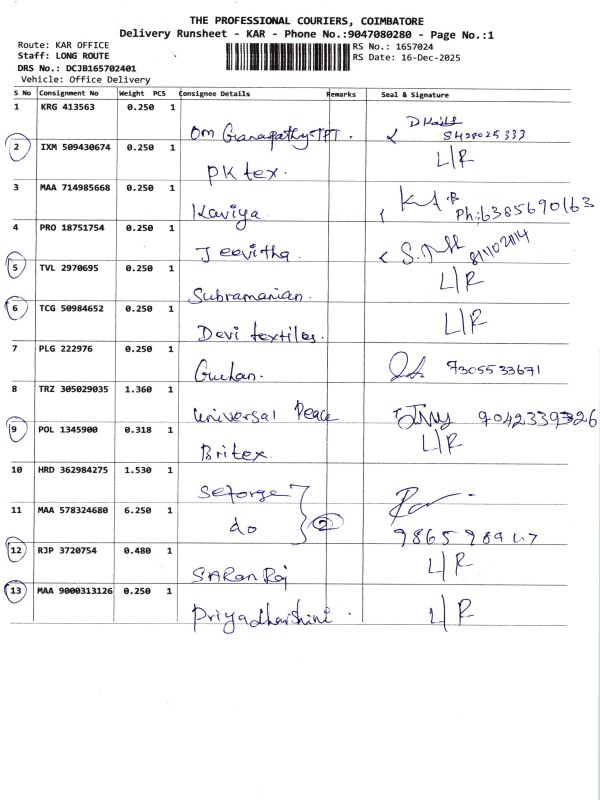 THE PROFESSIONAL COURIERS, COIMBATORE
Delivery Runsheet - KAR - Phone No.:9047080280 - Page No.:1
Route: KAR OFFICE
RS No.: 1657024
Staff: LONG ROUTE
RS Date: 16-Dec-2025
DRS No.: DCJB165702401
Vehicle: Office Delivery
S No Consignment No Weight PCS Consignee Details Remarks Seal & Signature
1 KRG 413563 0.250 1
Om Ganapathy TPT.
2 IXM 509430674 0.250 1 L/R
PK tex.
3 MAA 714985668 0.250 1
Kaviya. Ph:6385690163
4 PRO 18751754 0.250 1
Jeevitha.
5 TVL 2970695 0.250 1 L/R
Subramanian.
6 TCG 50984652 0.250 1 L/R
Devi textiles.
7 PLG 222976 0.250 1
Guhan. 7305533671
8 TRZ 305029035 1.360 1
Universal Peace 9042339326
9 POL 1345900 0.318 1 L/R
Britex.
10 HRD 362984275 1.530 1
Seforge
11 MAA 578324680 6.250 1
do 2
12 RJP 3720754 0.480 1 L/R
SARan Raj
13 MAA 9000313126 0.250 1 L/R
Priyadharshini.